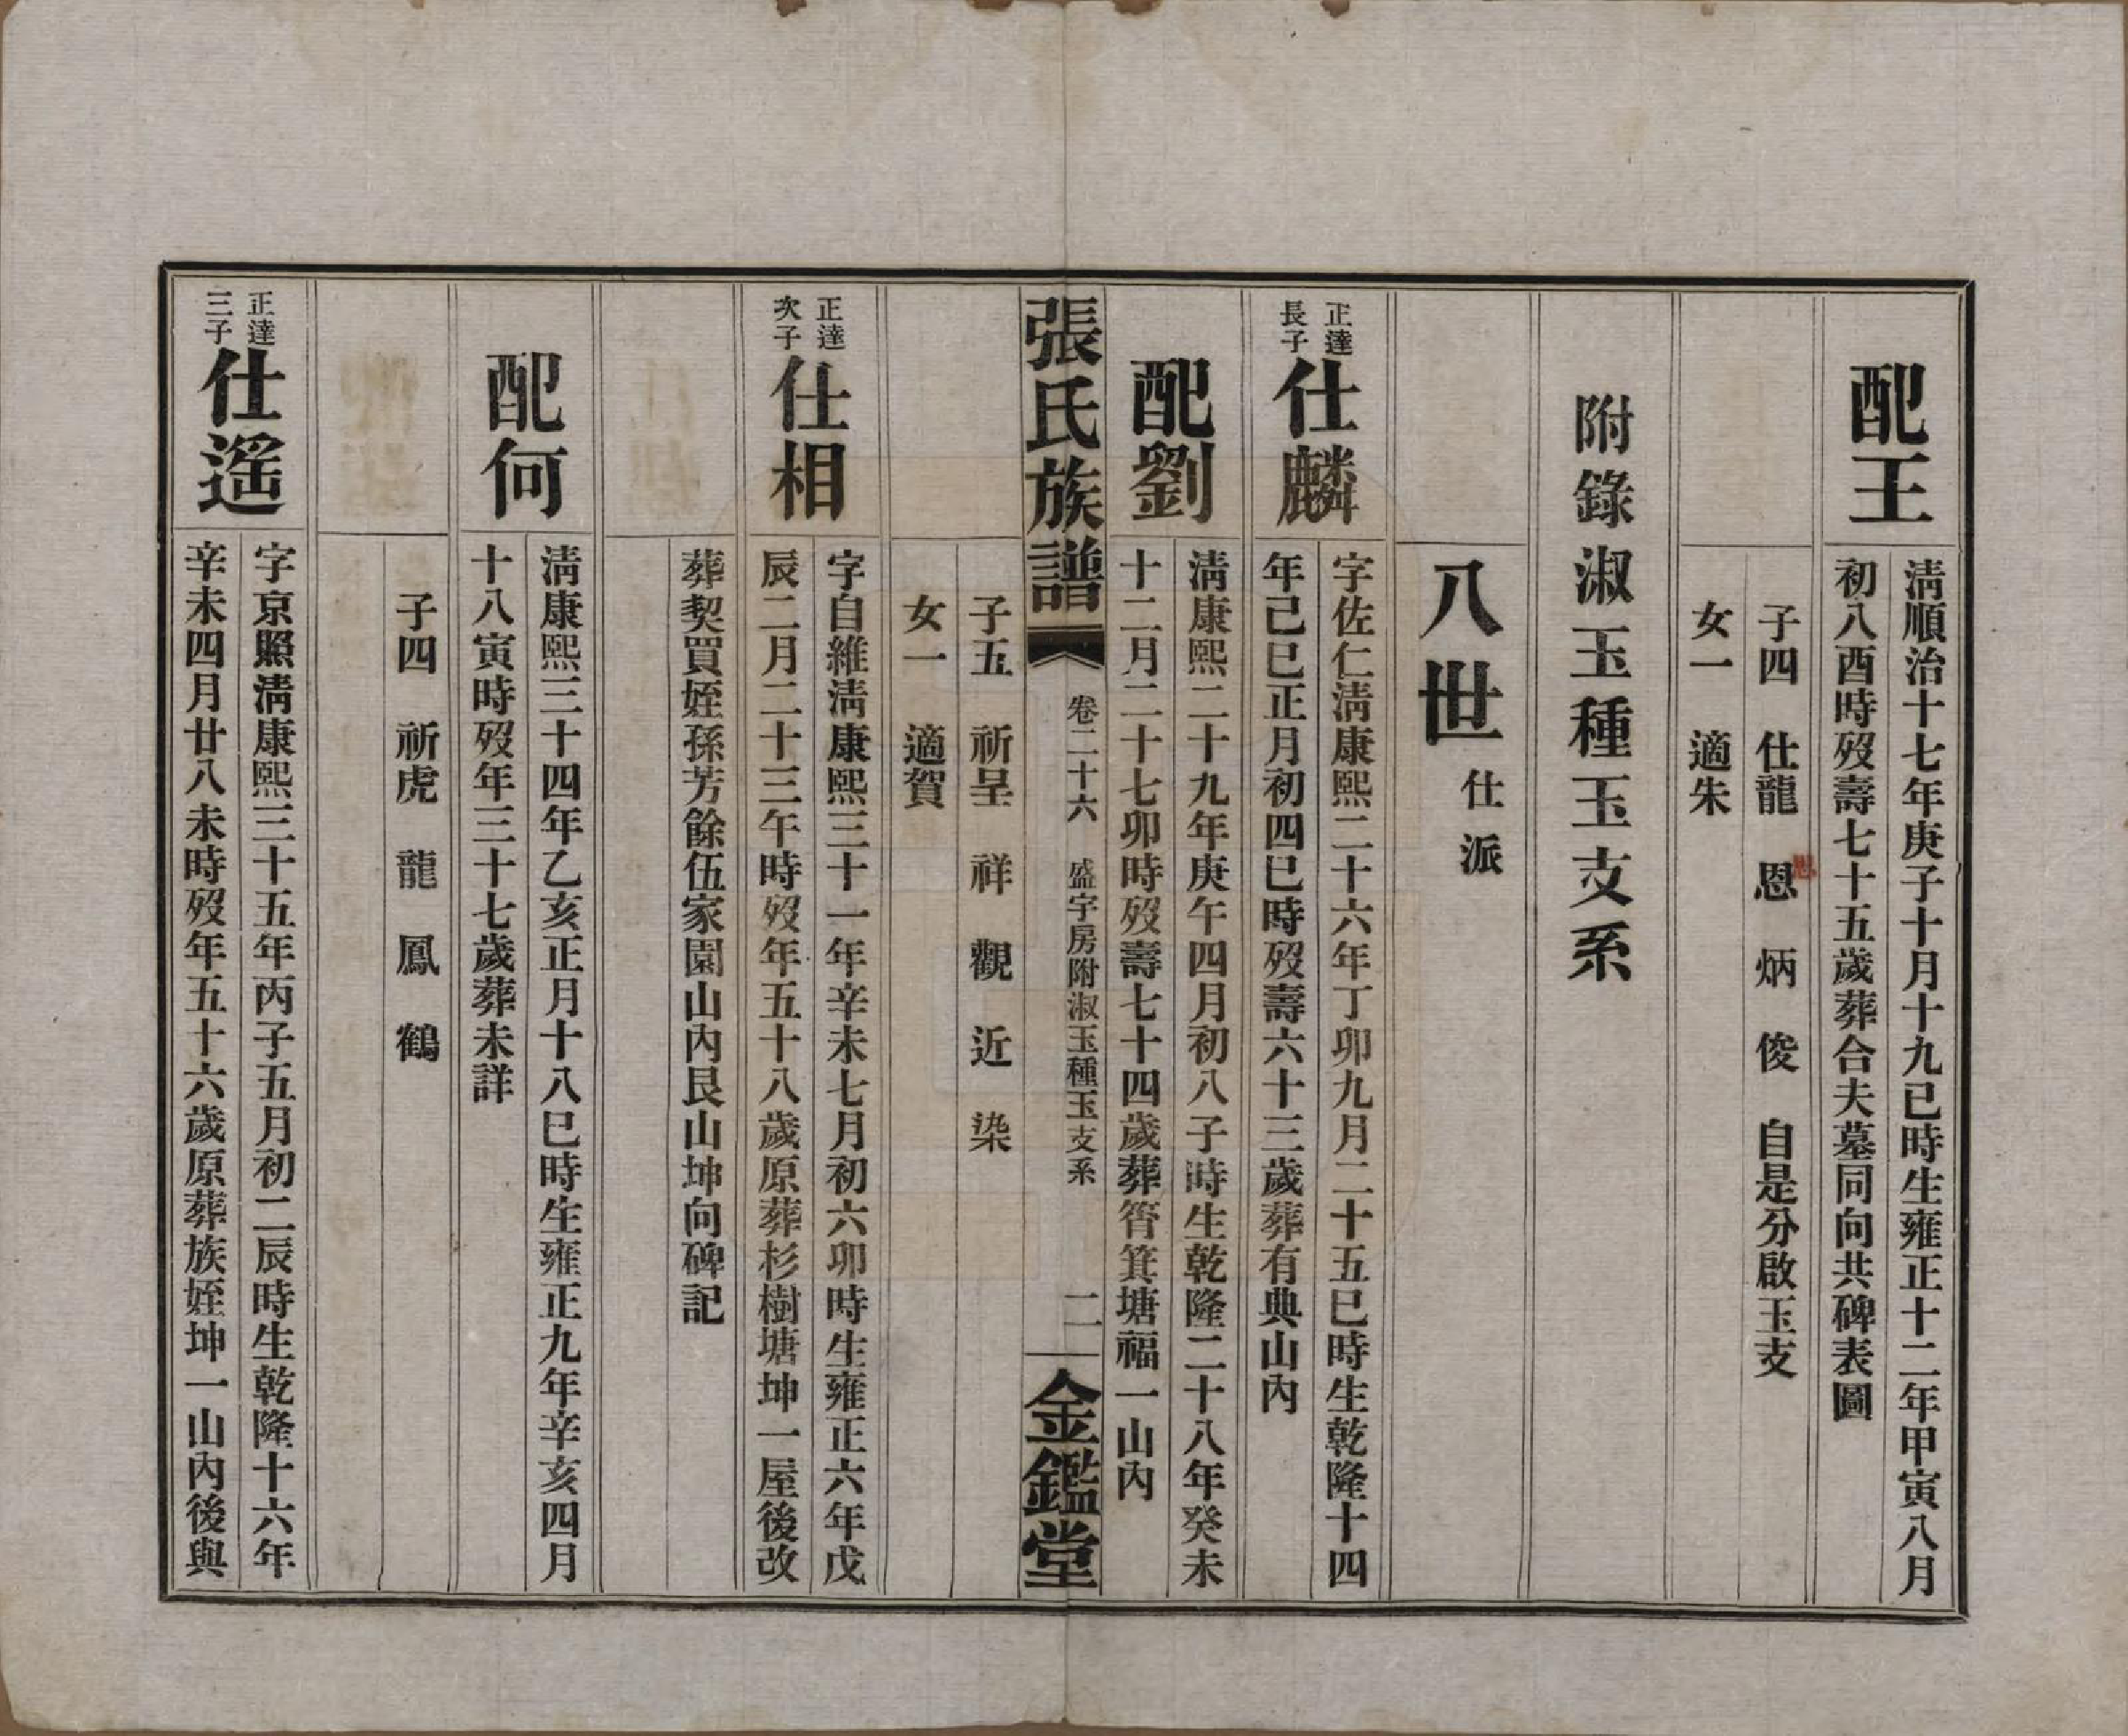 配王
清順治十七年庚子十月十九巳時生雍正十二年甲寅八月
初八酉時歿壽七十五歲葬合夫墓同向共碑表圖
子四　仕龍　恩　炳　俊　自是分啟玉支
女一　適朱
附錄淑玉種玉支系
八世 仕派
正達
長子
仕麟
字佐仁清康熙二十六年丁卯九月二十五巳時生乾隆十四
年己巳正月初四巳時歿壽六十三歲葬有典山內
配劉
清康熙二十九年庚午四月初八子時生乾隆二十八年癸未
十二月二十七卯時歿壽七十四歲葬筲箕塘福一山內
張氏族譜
卷二十六　盛宇房附淑玉種玉支系
二
金鑑堂
子五　祈呈　祥　觀　近　染
女一　適賀
正達
次子
仕相
字自維清康熙三十一年辛未七月初六卯時生雍正六年戊
辰二月二十三午時歿年五十八歲原葬杉樹塘坤一屋後改
葬契買姪孫芳餘伍家園山內艮山坤向碑記
配何
清康熙三十四年乙亥正月十八巳時生雍正九年辛亥四月
十八寅時歿年三十七歲葬未詳
子四　祈虎　龍　鳳　鶴
正達
三子
仕遙
字京照清康熙三十五年丙子五月初二辰時生乾隆十六年
辛未四月廿八未時歿年五十六歲原葬族姪坤一山內後與